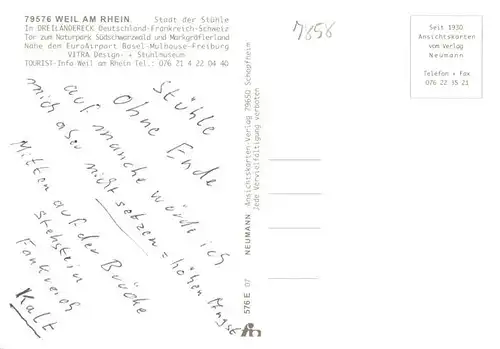 79576 WEIL AM RHEIN Stadt der Stühle
In DREILÄNDERECK Deutschland-Frankreich-Schweiz
Tor zum Naturpark Südschwarzwald und Markgräflerland
Nahe dem EuroAirport Basel-Mulhouse-Freiburg
VITRA Design- + Stuhlmuseum
TOURIST-Info Weil am Rhein Tel.: 076 21 4 22 04 40
Stühle
Ohne Ende
auf manche würde ich
mich aber nicht setzen = höhen Angst
Mitten auf der Brücke
stehstein
Frankreich
Kalt
576 E 07 NEUMANN Ansichtskarten-Verlag 79650 Schopfheim
Jede Vervielfältigung verboten
7858
Seit 1930
Ansichtskarten
vom Verlag
Neumann
Telefon + Fax
076 22 35 21